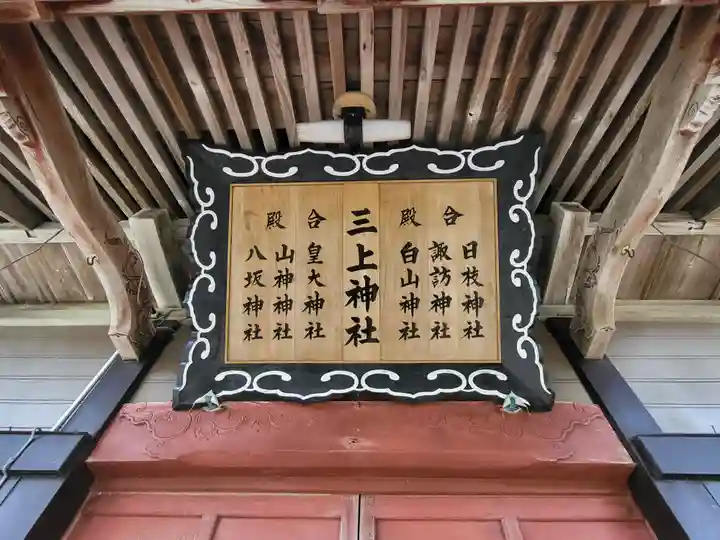 合殿
日枝神社
諏訪神社
白山神社
三上神社
合殿
皇大神社
山神神社
八坂神社